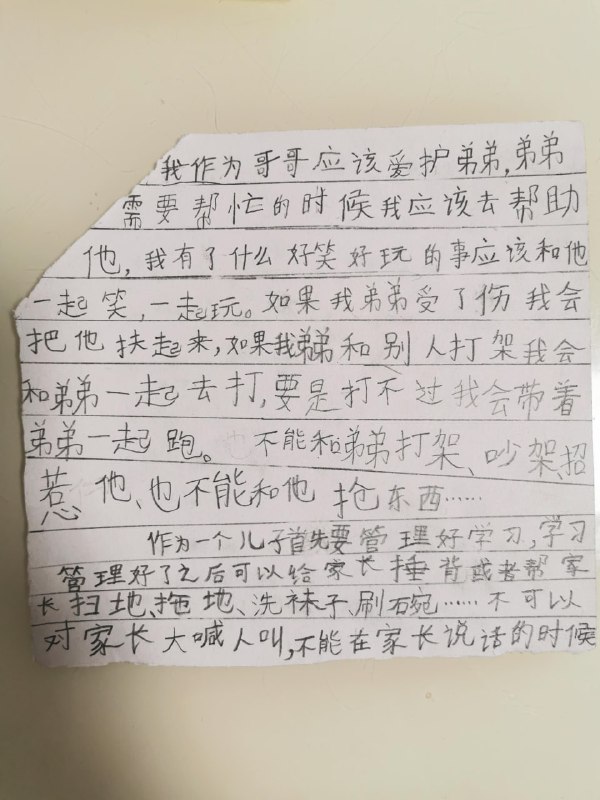 我作为哥哥应该爱护弟弟,弟弟
需要帮忙的时候我应该去帮助
他,我有了什么好笑好玩的事应该和他
一起笑,一起玩。如果我弟弟受了伤我会
把他扶起来,如果我弟弟和别人打架我会
和弟弟一起去打,要是打不过我会带着
弟弟一起跑。不能和弟弟打架、吵架、招
惹他、也不能和他抢东西……
作为一个儿子首先要管理好学习,学习
管理好了之后可以给家长捶背或者帮家
长扫地、拖地、洗袜子、刷碗……不可以
对家长大喊人叫,不能在家长说话的时候